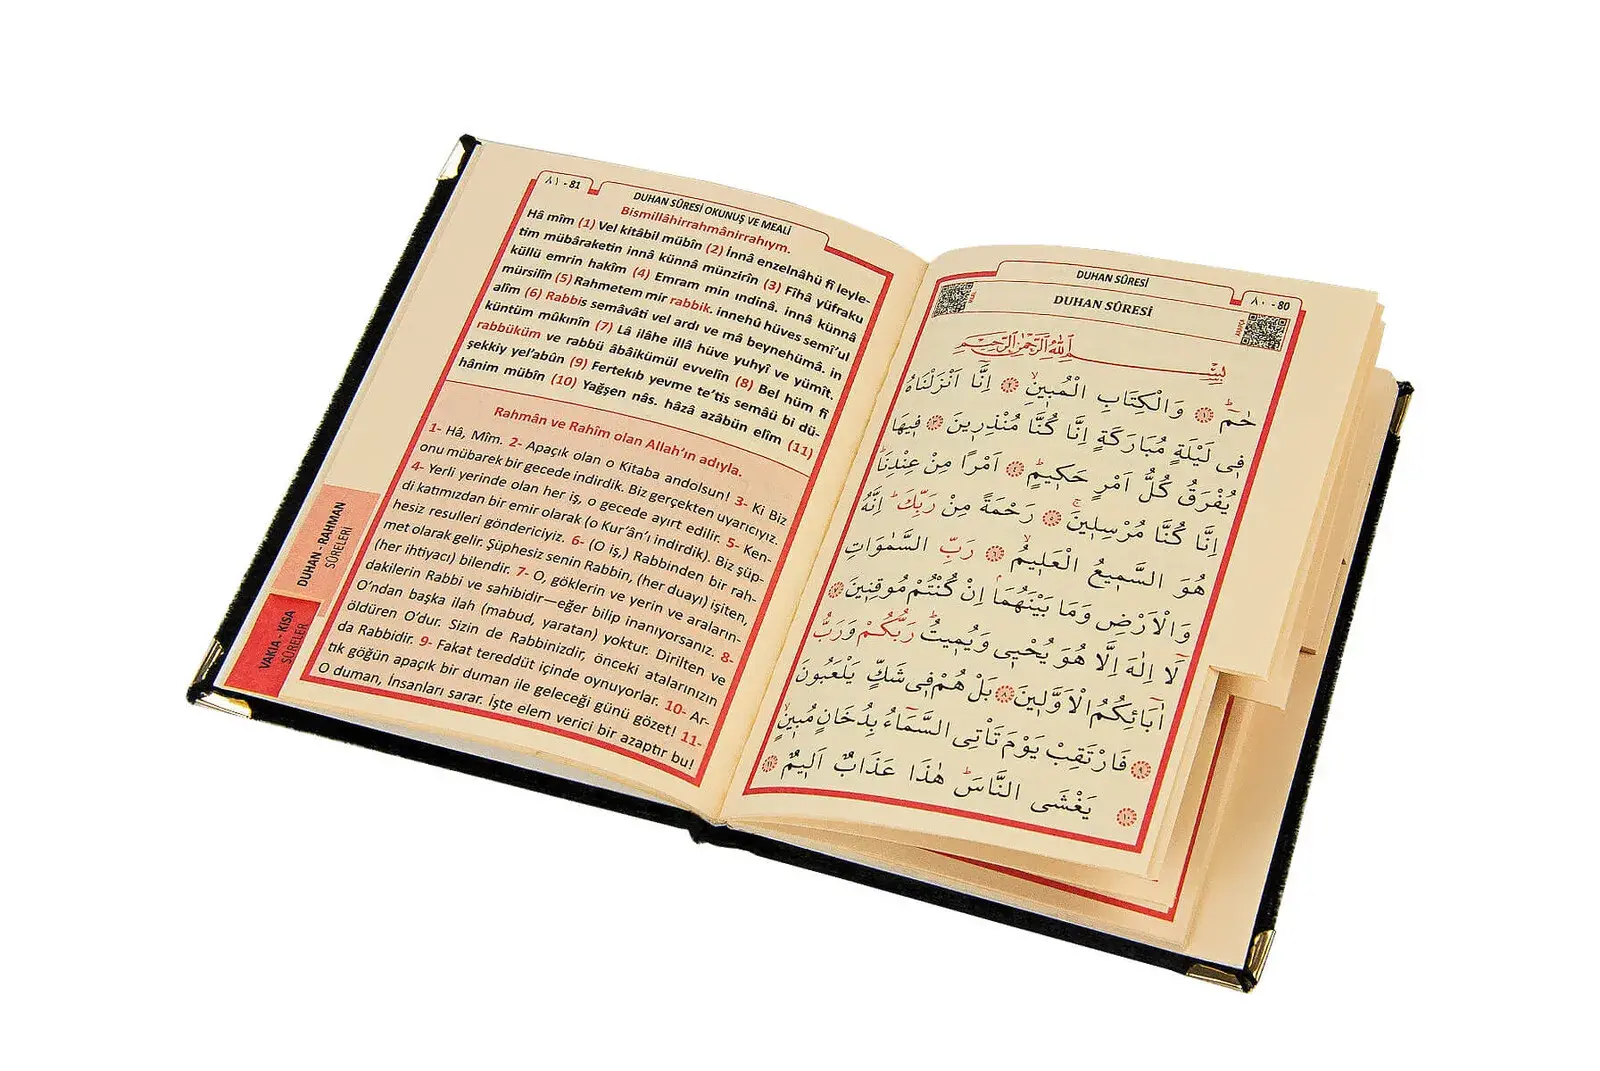 ٨١ - 81
DUHAN SÛRESİ OKUNUŞ VE MEALİ
Bismillâhirrahmânirrahıym.
Hâ mîm (1) Vel kitâbil mübîn (2) İnnâ enzelnâhü fî leyle-
tim mübâraketin innâ künnâ münzirîn (3) Fîhâ yüfraku
küllü emrin hakîm (4) Emram min ındinâ. innâ künnâ
mürsilîn (5) Rahmetem mir rabbik. innehû hüves semî'ul
alîm (6) Rabbis semâvâti vel ardı ve mâ beynehümâ. in
küntüm mûkınîn (7) Lâ ilâhe illâ hüve yuhyî ve yümît.
rabbüküm ve rabbü âbâikümül evvelîn (8) Bel hüm fî
şekkiy yel'abûn (9) Fertekıb yevme te'tîs semâü bi dü-
hânim mübîn (10) Yağşen nâs. hâzâ azâbün elîm (11)
Rahmân ve Rahîm olan Allah'ın adıyla.
1- Hâ, Mîm. 2- Apaçık olan o Kitaba andolsun! 3- Ki Biz
onu mübarek bir gecede indirdik. Biz gerçekten uyarıcıyız.
4- Yerli yerinde olan her iş, o gecede ayırt edilir. 5- Ken-
di katımızdan bir emir olarak (o Kur'ân'ı indirdik). Biz şüp-
hesiz resulleri göndericiyiz. 6- (O iş,) Rabbinden bir rah-
met olarak gelir. Şüphesiz senin Rabbin, (her duayı) işiten,
(her ihtiyacı) bilendir. 7- O, göklerin ve yerin ve araların-
dakilerin Rabbi ve sahibidir—eğer bilip inanıyorsanız. 8-
O'ndan başka ilah (mabud, yaratan) yoktur. Dirilten ve
öldüren O'dur. Sizin de Rabbinizdir, önceki atalarınızın
da Rabbidir. 9- Fakat tereddüt içinde oynuyorlar. 10- Ar-
tık göğün apaçık bir duman ile geleceği günü gözet! 11-
O duman, İnsanları sarar. İşte elem verici bir azaptır bu!
DUHAN - RAHMAN
SÛRELERİ
VAKIA - KISA
SÛRELER
DUHAN SÛRESİ
٨٠ - 80
DUHAN SÛRESİ
بِسْمِ اللّٰهِ الرَّحْمٰنِ الرَّحٖيمِ
حٰمٓ ۚ ﴿١﴾ وَالْكِتَابِ الْمُبٖينِ ۙ ﴿٢﴾ اِنَّٓا اَنْزَلْنَاهُ
فٖى لَيْلَةٍ مُبَارَكَةٍ اِنَّا كُنَّا مُنْذِرٖينَ ﴿٣﴾ فٖيهَا
يُفْرَقُ كُلُّ اَمْرٍ حَكٖيمٍ ۚ ﴿٤﴾ اَمْرًا مِنْ عِنْدِنَا ۜ
اِنَّا كُنَّا مُرْسِلٖينَ ۚ ﴿٥﴾ رَحْمَةً مِنْ رَبِّكَ ۜ اِنَّهُ
هُوَ السَّمٖيعُ الْعَلٖيمُ ۙ ﴿٦﴾ رَبِّ السَّمٰوَاتِ
وَالْاَرْضِ وَمَا بَيْنَهُمَا ۢ اِنْ كُنْتُمْ مُوقِنٖينَ ﴿٧﴾
لَٓا اِلٰهَ اِلَّا هُوَ يُحْيٖى وَيُمٖيتُ ۜ رَبُّكُمْ وَرَبُّ
اٰبَٓائِكُمُ الْاَوَّلٖينَ ﴿٨﴾ بَلْ هُمْ فٖى شَكٍّ يَلْعَبُونَ
﴿٩﴾ فَارْتَقِبْ يَوْمَ تَاْتِى السَّمَٓاءُ بِدُخَانٍ مُبٖينٍ ۙ
﴿١٠﴾ يَغْشَى النَّاسَ ۜ هٰذَا عَذَابٌ اَلٖيمٌ ﴿١١﴾